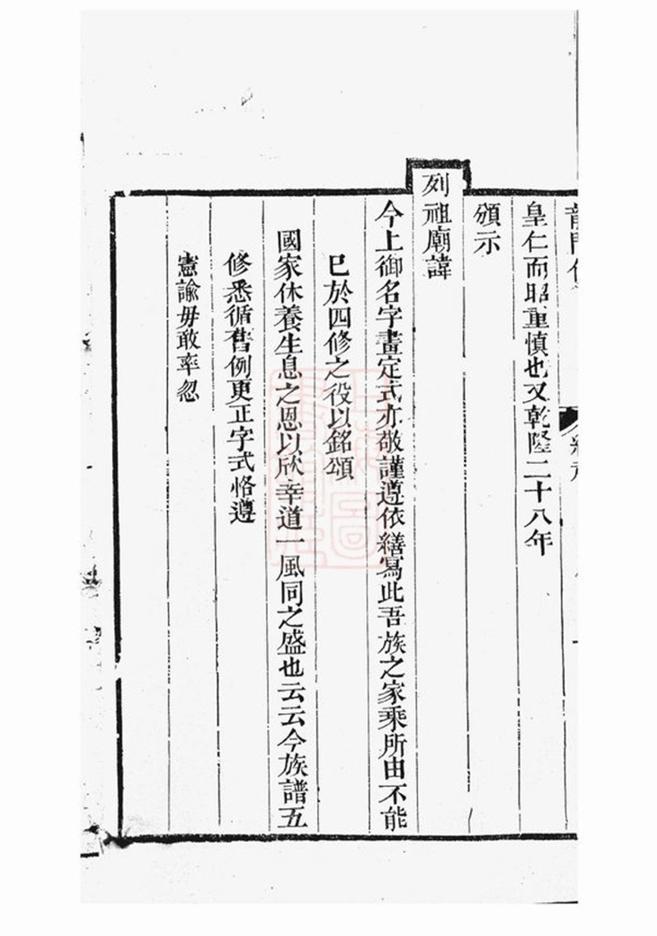 皇仁而昭重慎也又乾隆二十八年
頒示
列祖廟諱
今上御名字畫定式亦敬謹遵依繕寫此吾族之家乘所由不能
已於四修之役以銘頌
國家休養生息之恩以欣幸道一風同之盛也云云今族譜五
修悉循舊例更正字式恪遵
憲諭毋敢率忽